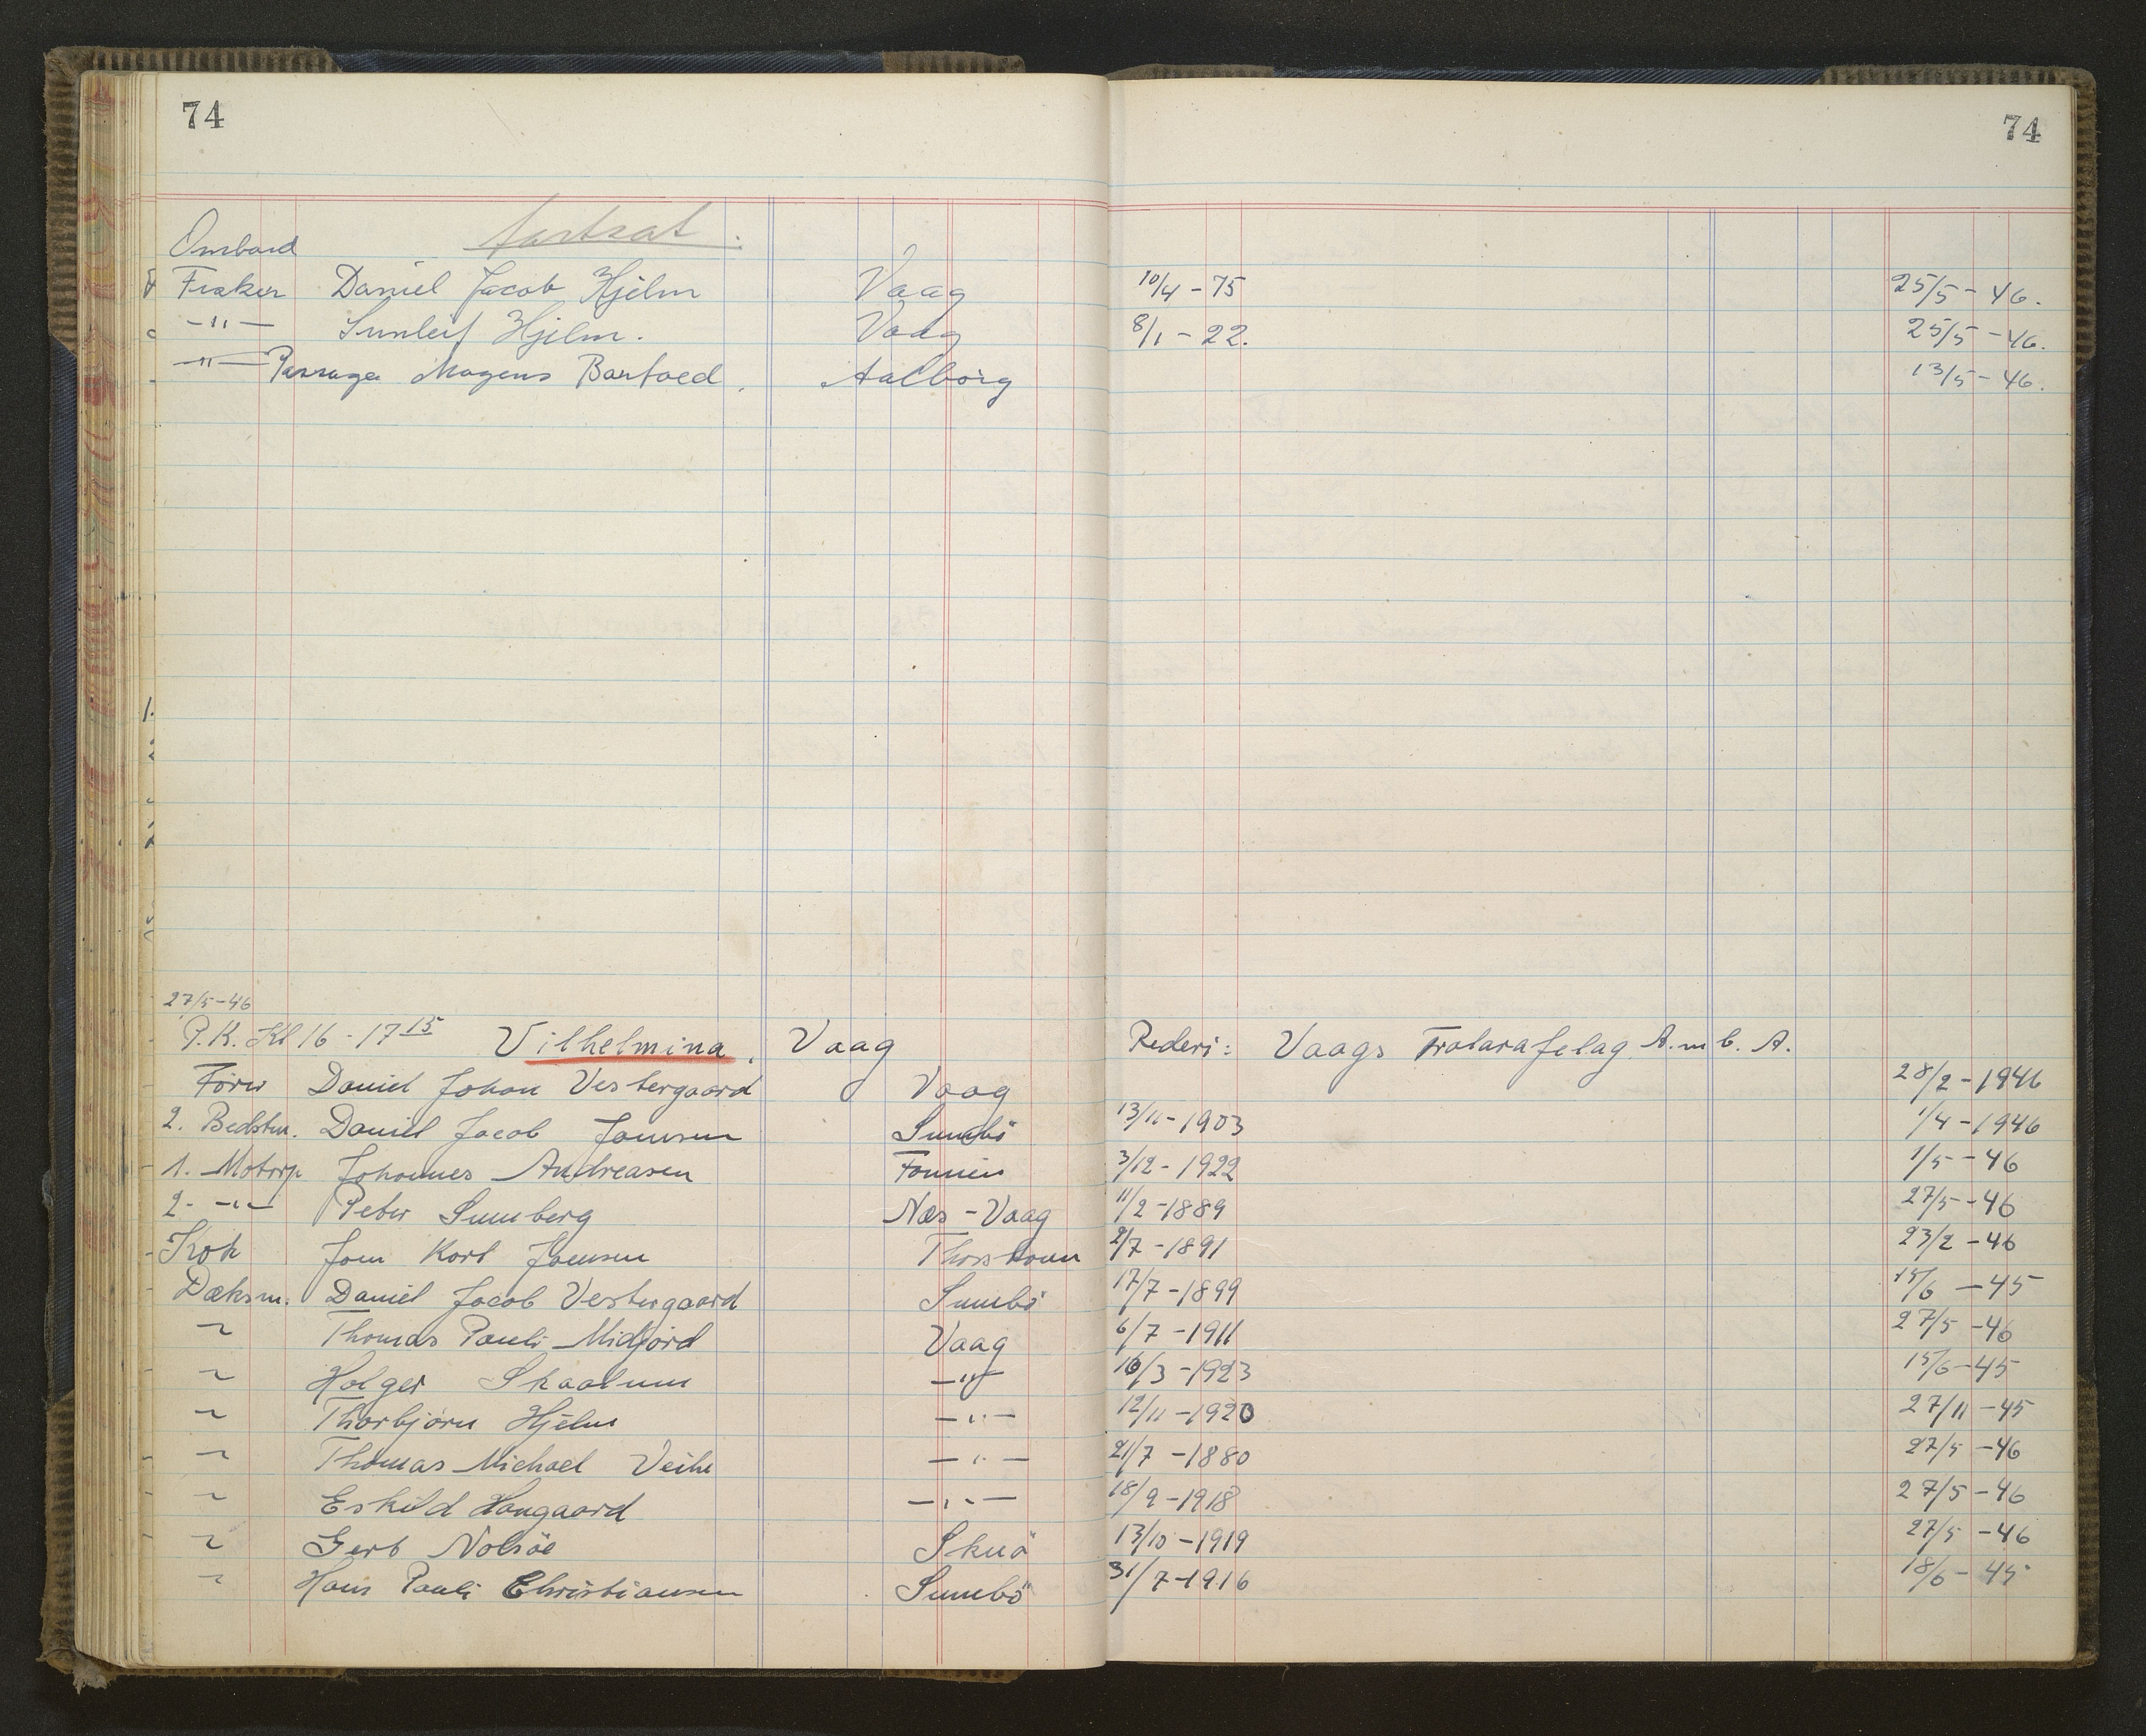 74 74
fortsat.
Ombord
Fisker Daniel Jacob Hjelm Vaag 10/4 - 75 25/5 - 46.
-"- Sunleif Hjelm. Vaag 8/1 - 22. 25/5 - 46.
-"- Passager Mogens Aalborg 13/5 - 46.
27/5-46
P.K. Kl 16 - 17 15 Vilhelmina. Vaag Rederi: Vaags Trolarafelag A.m.b.A.
Förer Daniel Johan Vestergaard Vaag 28/2 - 1946
2. Bedstm. Daniel Jacob Joensen Sumbö 13/11 - 1903 1/4 - 1946
1. Motorp. Johannes Andreasen Famien 3/12 - 1922 1/5 - 46
2- -"- Peter Sumberg Næs - Vaag 11/2 - 1889 27/5 - 46
Kok Joen Kort Joensen 2/7 - 1891 23/2 - 46
Dæksm. Daniel Jacob Vestergaard Sumbö 17/7 - 1899 15/6 - 45
" Thomas Pauli Midjord Vaag 6/7 - 1911 27/5 - 46
" Holger Skaalum -"- 16/3 - 1923 15/6 - 45
" Thorbjörn Hjelm -"- 12/11 - 1920 27/11 - 45
" Thomas Michael Veihe -"- 21/7 - 1880 27/5 - 46
" Eskild Haugaard -"- 18/9 - 1918 27/5 - 46
" Gert Nolsöe Skuö 13/10 - 1919 27/5 - 46
" Hans Pauli Christiansen Sumbö 31/7 - 1916 18/6 - 45